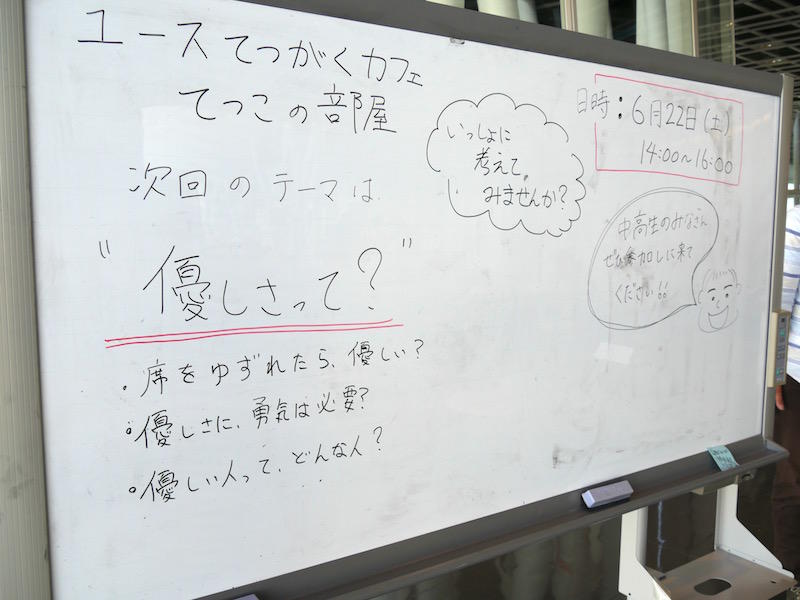 ユースてつがくカフェ
てつこの部屋
次回のテーマは
"優しさって?"
・席をゆずれたら、優しい?
・優しさに、勇気は必要?
・優しい人って、どんな人?
いっしょに
考えて
みませんか?
日時:6月22日(土)
14:00~16:00
中高生のみなさん
ぜひ参加しに来て
ください!!